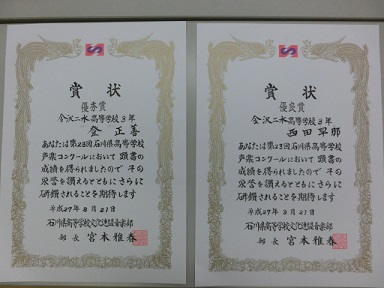 賞状
優秀賞
金沢二水高等学校3年
登 正善
あなたは第23回石川県高等学校
声楽コンクールにおいて頭書の
成績を得られましたので その
栄誉を讃えるとともにさらに
研鑽されることを期待します
平成27年8月21日
石川県高等学校文化連盟音楽部
部長 宮本雅春
賞状
優良賞
金沢二水高等学校3年
西田早那
あなたは第23回石川県高等学校
声楽コンクールにおいて頭書の
成績を得られましたので その
栄誉を讃えるとともにさらに
研鑽されることを期待します
平成27年8月21日
石川県高等学校文化連盟音楽部
部長 宮本雅春